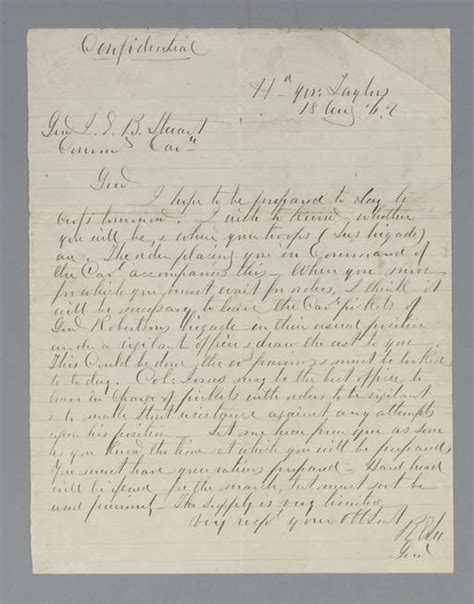 Confidential
Hd Qrs: Taylors
18 Aug '62
Genl J. E. B. Stuart
Commdg Cavy
Genl
I hope to be prepared to day to
cross tomorrow. I wish to know whether
you will be, & where your troops (Lees brigade)
are. The order placing you in Command of
the Cavy accompanies this — When you move
for which you must wait for orders, I think it
will be necessary to leave the Cavy pickets of
Genl Robertsons brigade in their usual position
under a vigilant officer & draw the rest to you
This Could be done, the provisions must be looked
to to day. Col: may be the best officer to
leave in Charge of pickets with orders to be vigilant
& to make strict vigilance against any attempts
upon his position — Let me hear from you as soon
as you know the time at which you will be prepared
You must have your rations prepared — Hard bread
will be issued for the march, but must not be
used — The supply is very limited
Very respy your obt Servt
R E Lee
Genl